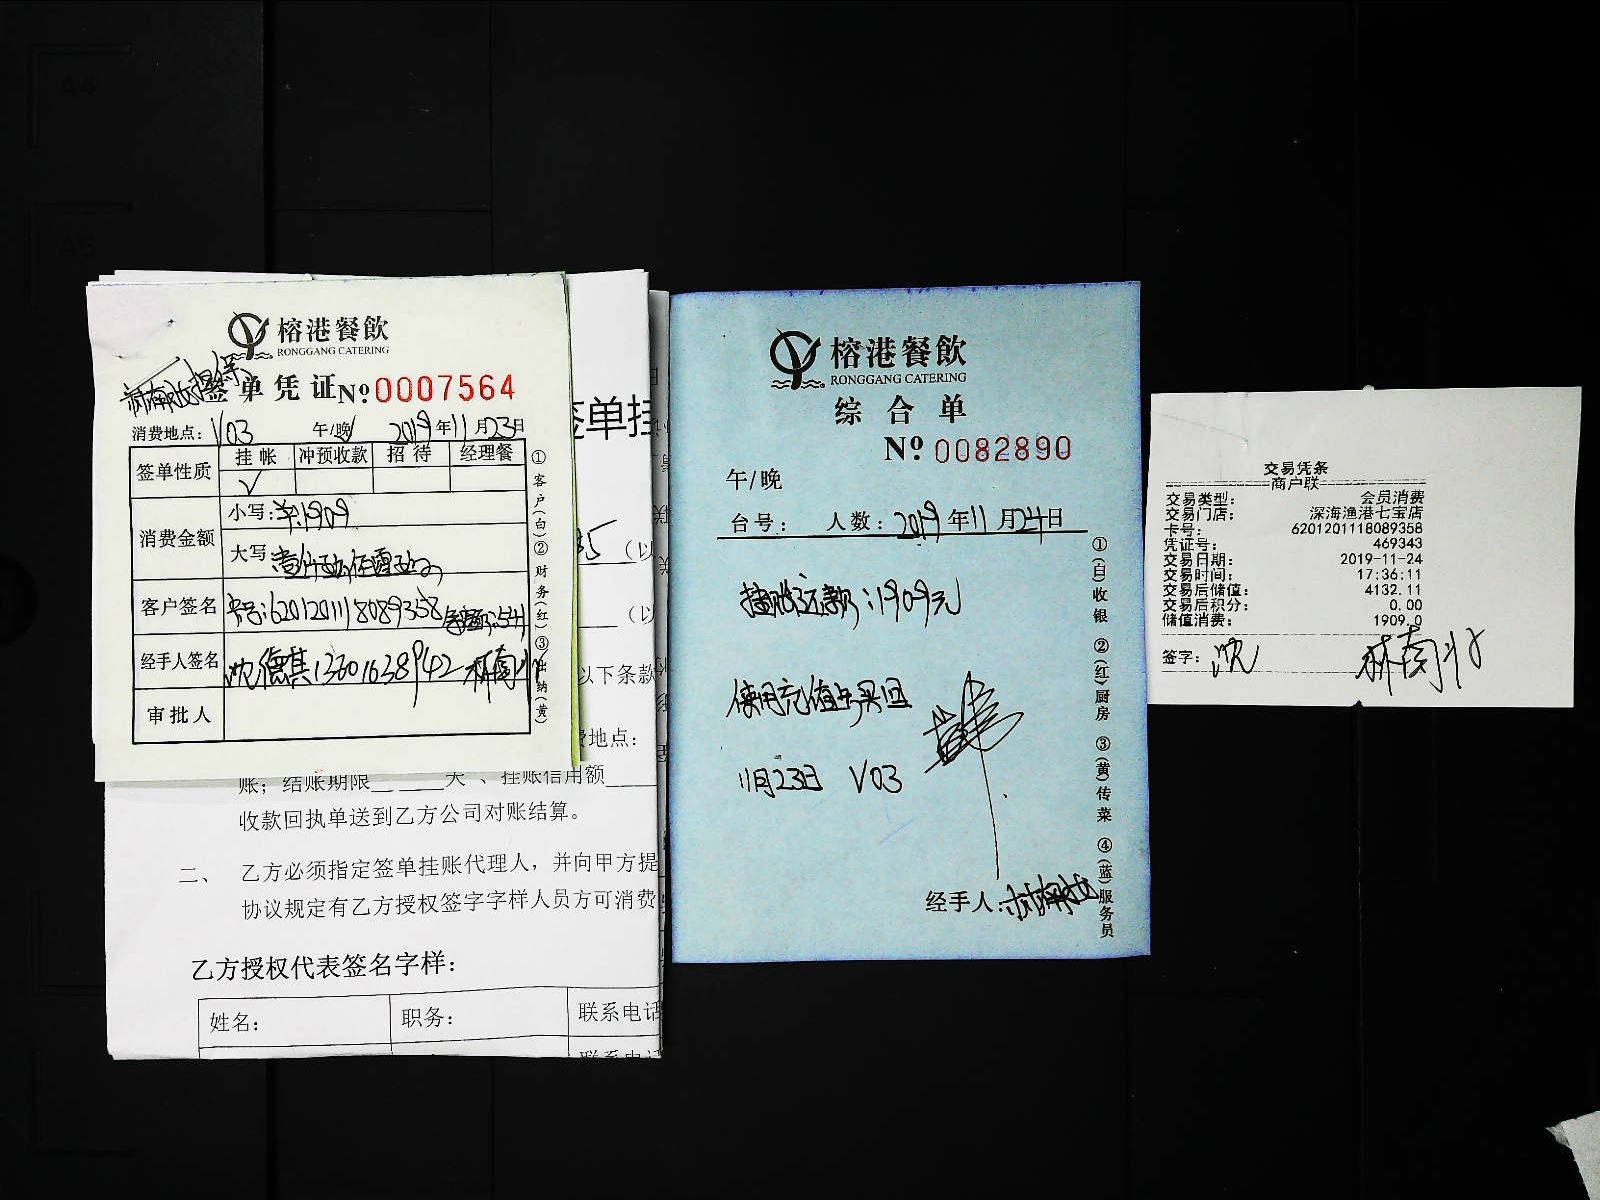 榕港餐飲
RONGGANG CATERING
签单凭证 № 0007564
消费地点: V03 午/晚 2019年11月23日
签单性质 挂帐 冲预收款 招待 经理餐
√
消费金额 小写: 1909
大写
客户签名 卡号:6201201118089358
经手人签名 沈德其13601638942 林南北
审批人
①客户(白)②财务(红)③出纳(黄)
签单挂
(以
(以
以下条款
费地点:
账；结账期限 天、挂账信用额
收款回执单送到乙方公司对账结算。
二、 乙方必须指定签单挂账代理人，并向甲方提
协议规定有乙方授权签字字样人员方可消费
乙方授权代表签名字样：
姓名： 职务： 联系电话
联系电话
榕港餐飲
RONGGANG CATERING
综合单
№ 0082890
午/晚
台号: 人数: 2019年11月24日
挂账还款:1909元
使用充值卡买回
11月23日 V03
经手人:
①(白)收银 ②(红)厨房 ③(黄)传菜 ④(蓝)服务员
交易凭条
商户联
交易类型: 会员消费
交易门店: 深海渔港七宝店
卡号: 6201201118089358
凭证号: 469343
交易日期: 2019-11-24
交易时间: 17:36:11
交易后储值: 4132.11
交易后积分: 0.00
储值消费: 1909.0
签字: 沈 林南北
A4
A5